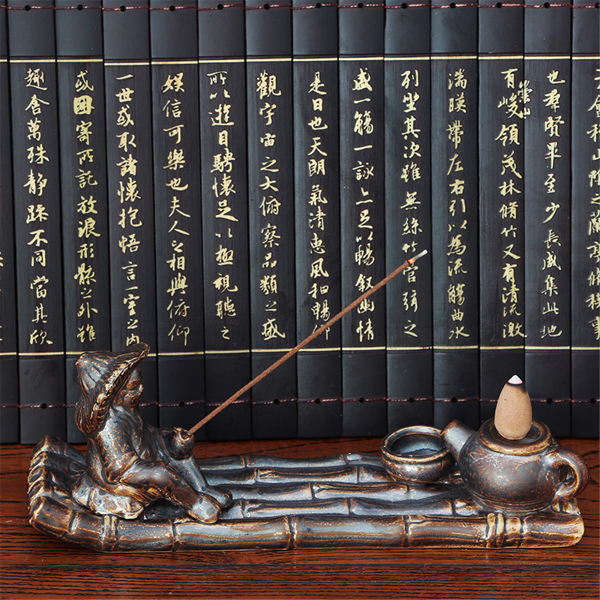 也群賢畢至少長咸集此地
有崇山峻領茂林脩竹又有清流激
湍暎帶左右引以為流觴曲水
列坐其次雖無絲竹管弦之
盛一觴一詠亦足以暢叙幽情
是日也天朗氣清惠風和暢仰
觀宇宙之大俯察品類之盛
所以遊目騁懷足以極視聽之
娛信可樂也夫人之相與俯仰
一世或取諸懷抱悟言一室之內
或因寄所託放浪形骸之外雖
趣舍萬殊靜躁不同當其欣